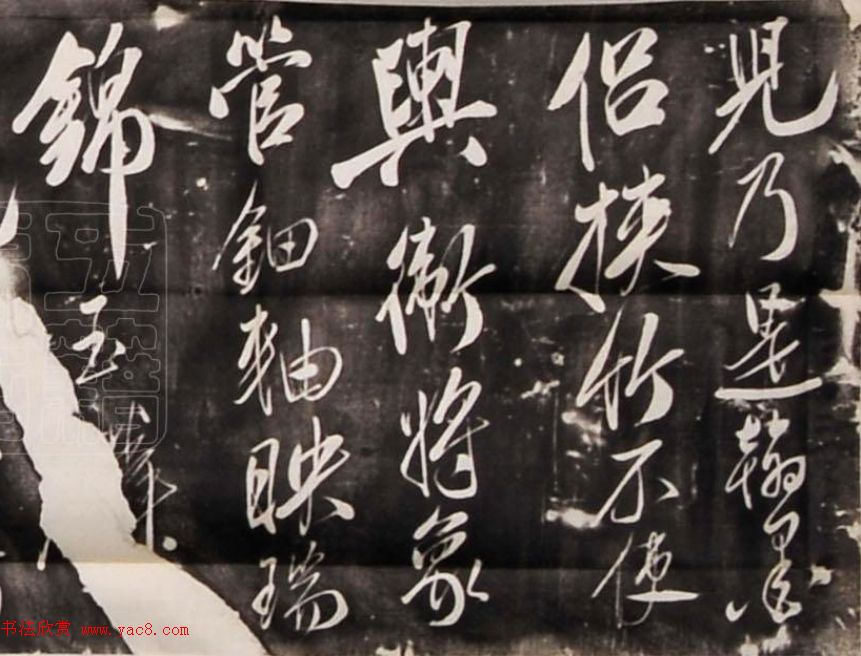 見乃是翰墨
侣挟竹不使
輿衛將象
管鈿軸映瑞
錦玉
书法欣赏 www.yac8.com